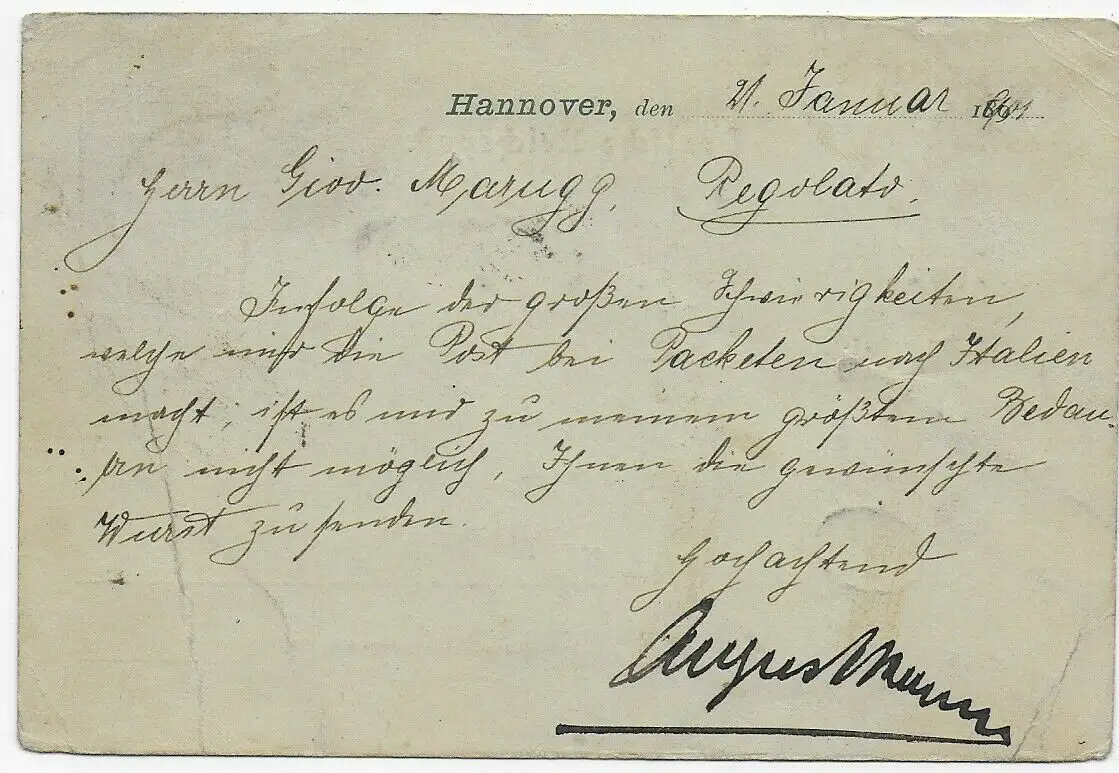 Hannover, den 21. Januar 1901
Herrn Giov. Marugg, Pegolato.
Infolge der großen Schwierigkeiten,
welche mir die Post bei Packeten nach Italien
macht, ist es mir zu meinem größten Bedau-
ern nicht möglich, Ihnen die gewünschte
Wurst zu senden.
Hochachtend
August Mann